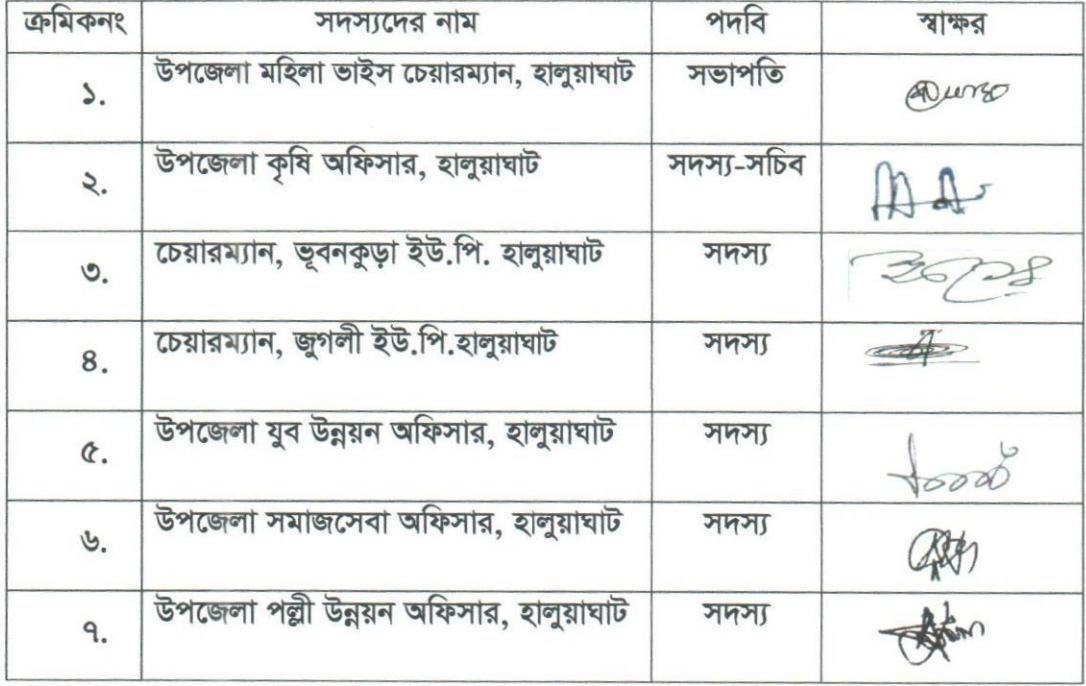 ক্রমিকনং সদস্যদের নাম পদবি স্বাক্ষর
১. উপজেলা মহিলা ভাইস চেয়ারম্যান, হালুয়াঘাট সভাপতি
২. উপজেলা কৃষি অফিসার, হালুয়াঘাট সদস্য-সচিব
৩. চেয়ারম্যান, ভূবনকুড়া ইউ.পি. হালুয়াঘাট সদস্য
৪. চেয়ারম্যান, জুগলী ইউ.পি.হালুয়াঘাট সদস্য
৫. উপজেলা যুব উন্নয়ন অফিসার, হালুয়াঘাট সদস্য
৬. উপজেলা সমাজসেবা অফিসার, হালুয়াঘাট সদস্য
৭. উপজেলা পল্লী উন্নয়ন অফিসার, হালুয়াঘাট সদস্য